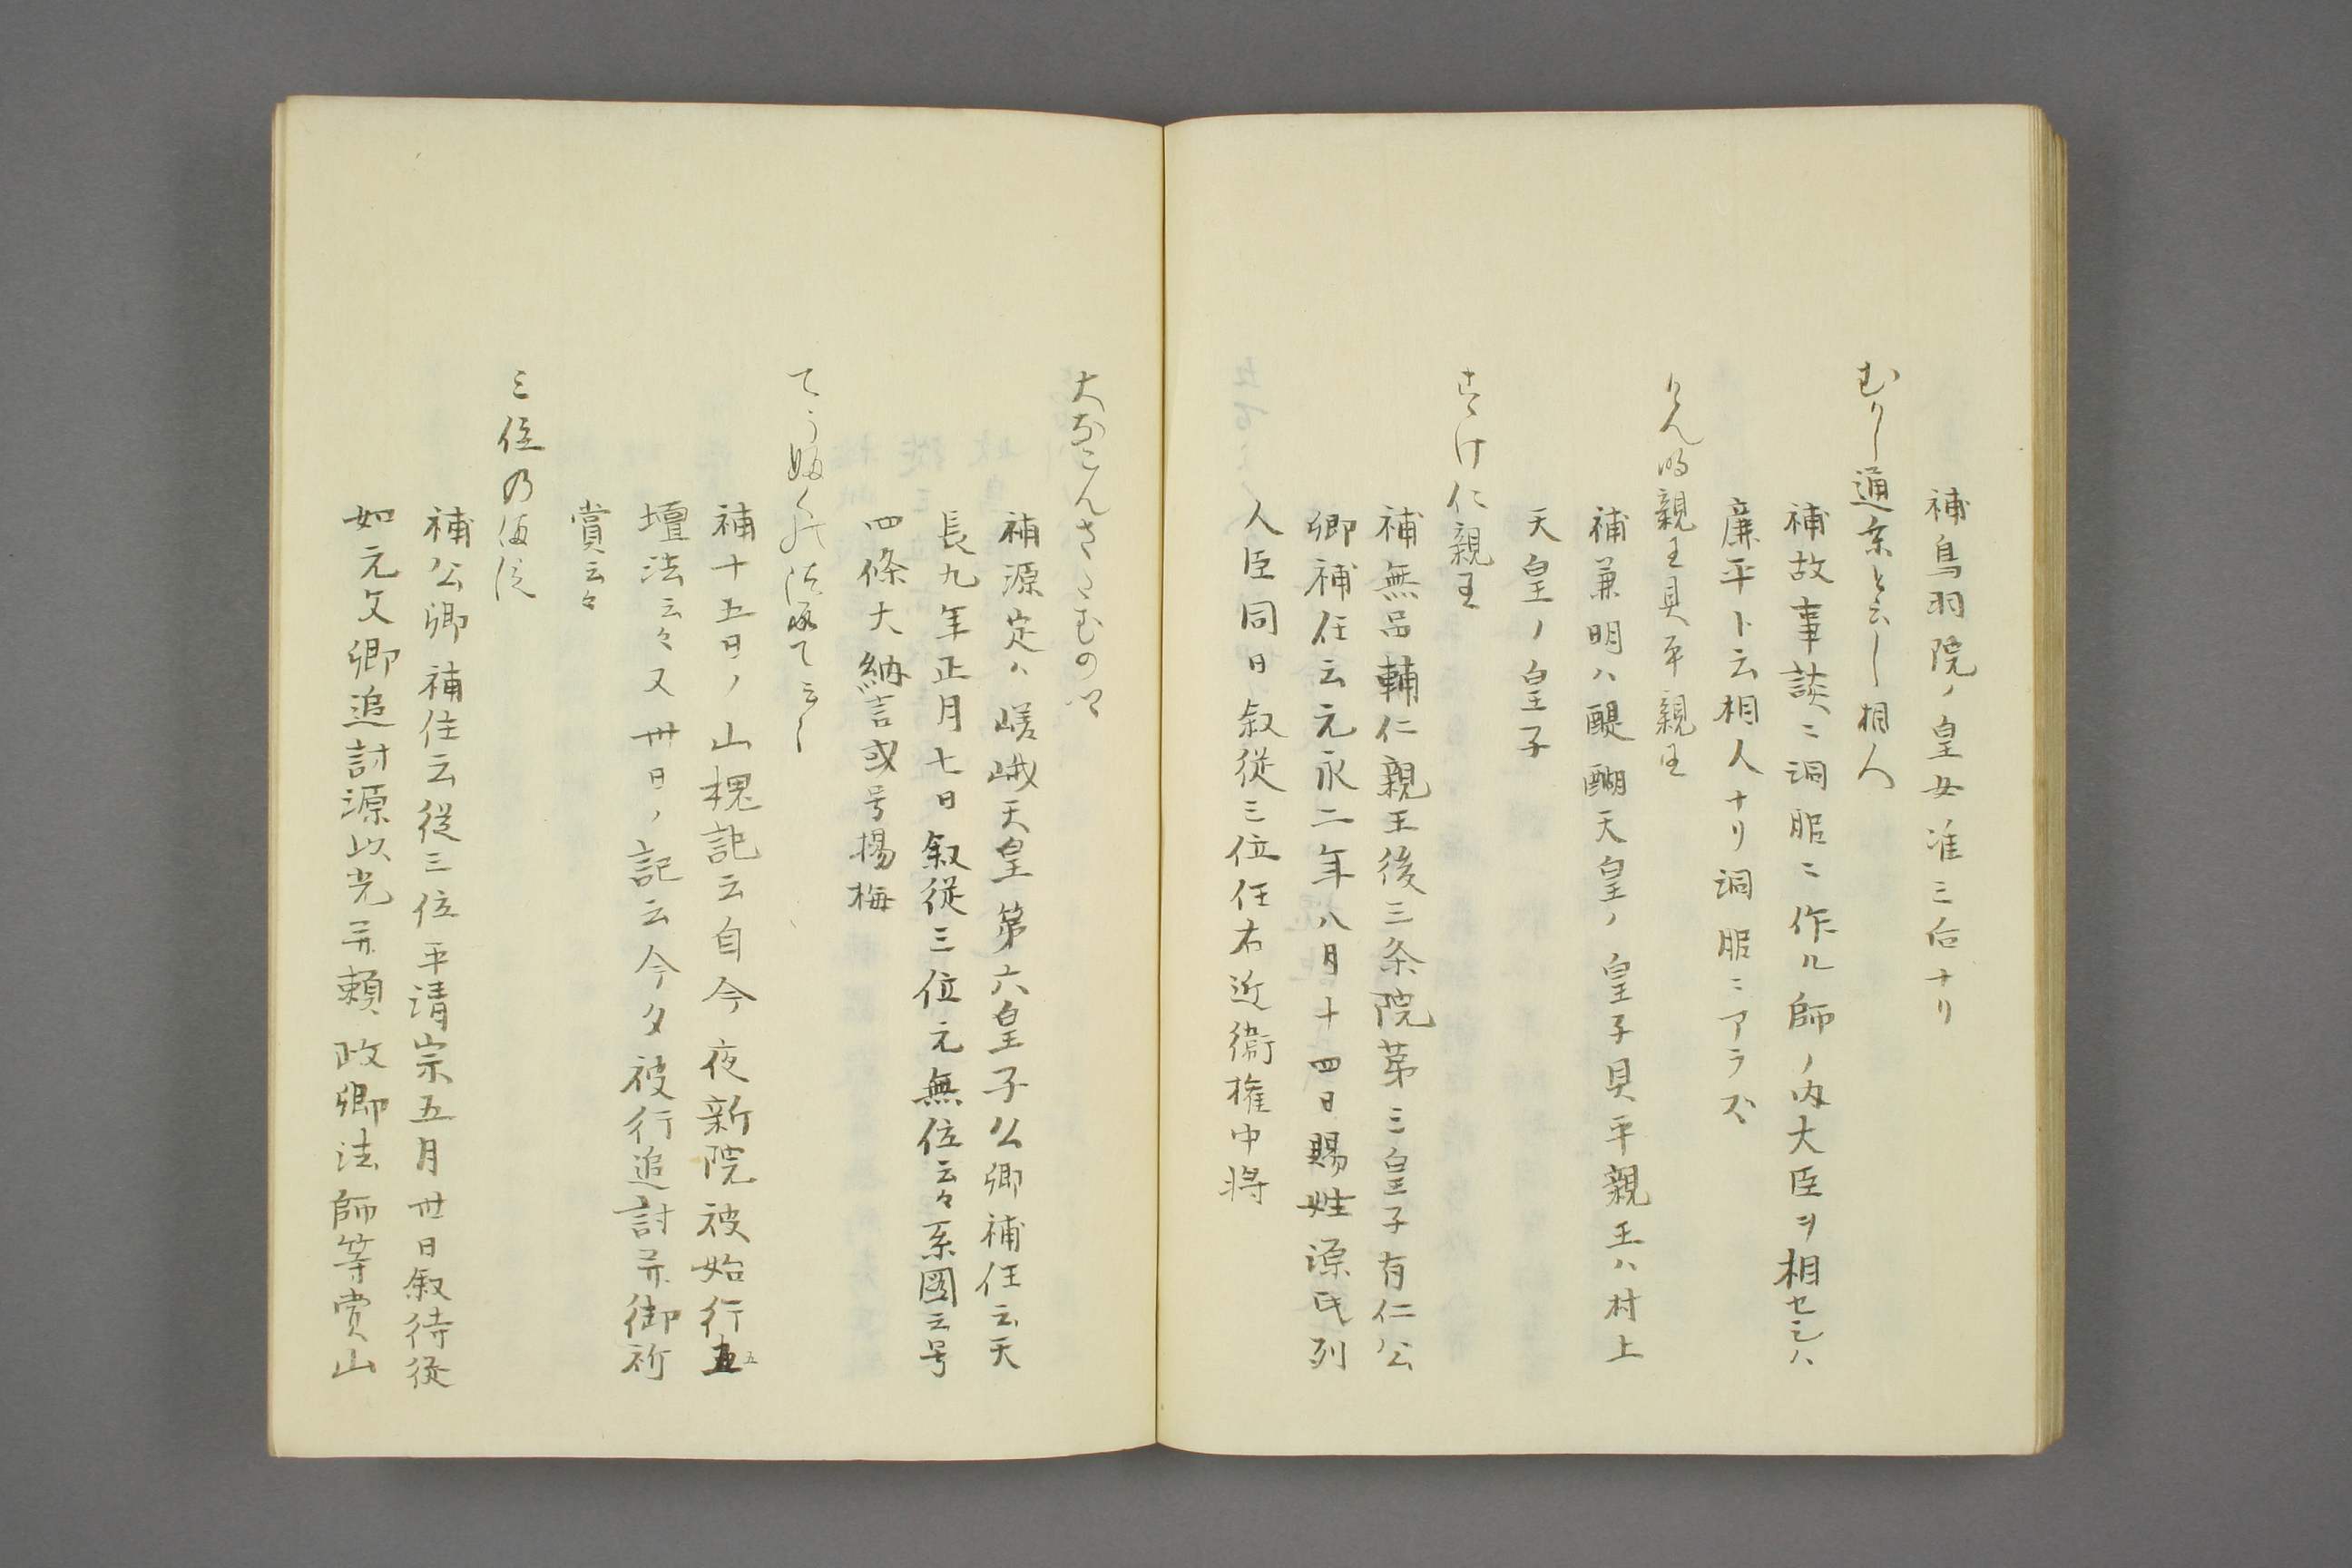 補鳥羽院ノ皇女准三后ナリ
むかし通乗と云し相人
補故事談ニ洞昭ニ作ル師ノ内大臣ヲ相セシハ
廉平ト云相人ナリ洞昭ニアラズ
けん明親王具平親王
補兼明ハ醍醐天皇ノ皇子具平親王ハ村上
天皇ノ皇子
すけ仁親王
補無品輔仁親王後三条院第三皇子有仁公
卿補任云元永二年八月十四日賜姓源氏列
人臣同日叙従三位任右近衛権中将
大なこんさたむの
補源定ハ嵯峨天皇第六皇子公卿補任云天
長九年正月七日叙従三位元無位云々系図云号
四條大納言或号揚梅
てうぶくの法
補十五日ノ山槐記云自今夜新院被始行五
壇法云々又卅日ノ記云今夕被行追討并御祈
賞云々
三位の侍従
補公卿補任云従三位平清宗五月卅日叙侍従
如元父卿追討源以光并頼政卿法師等賞山